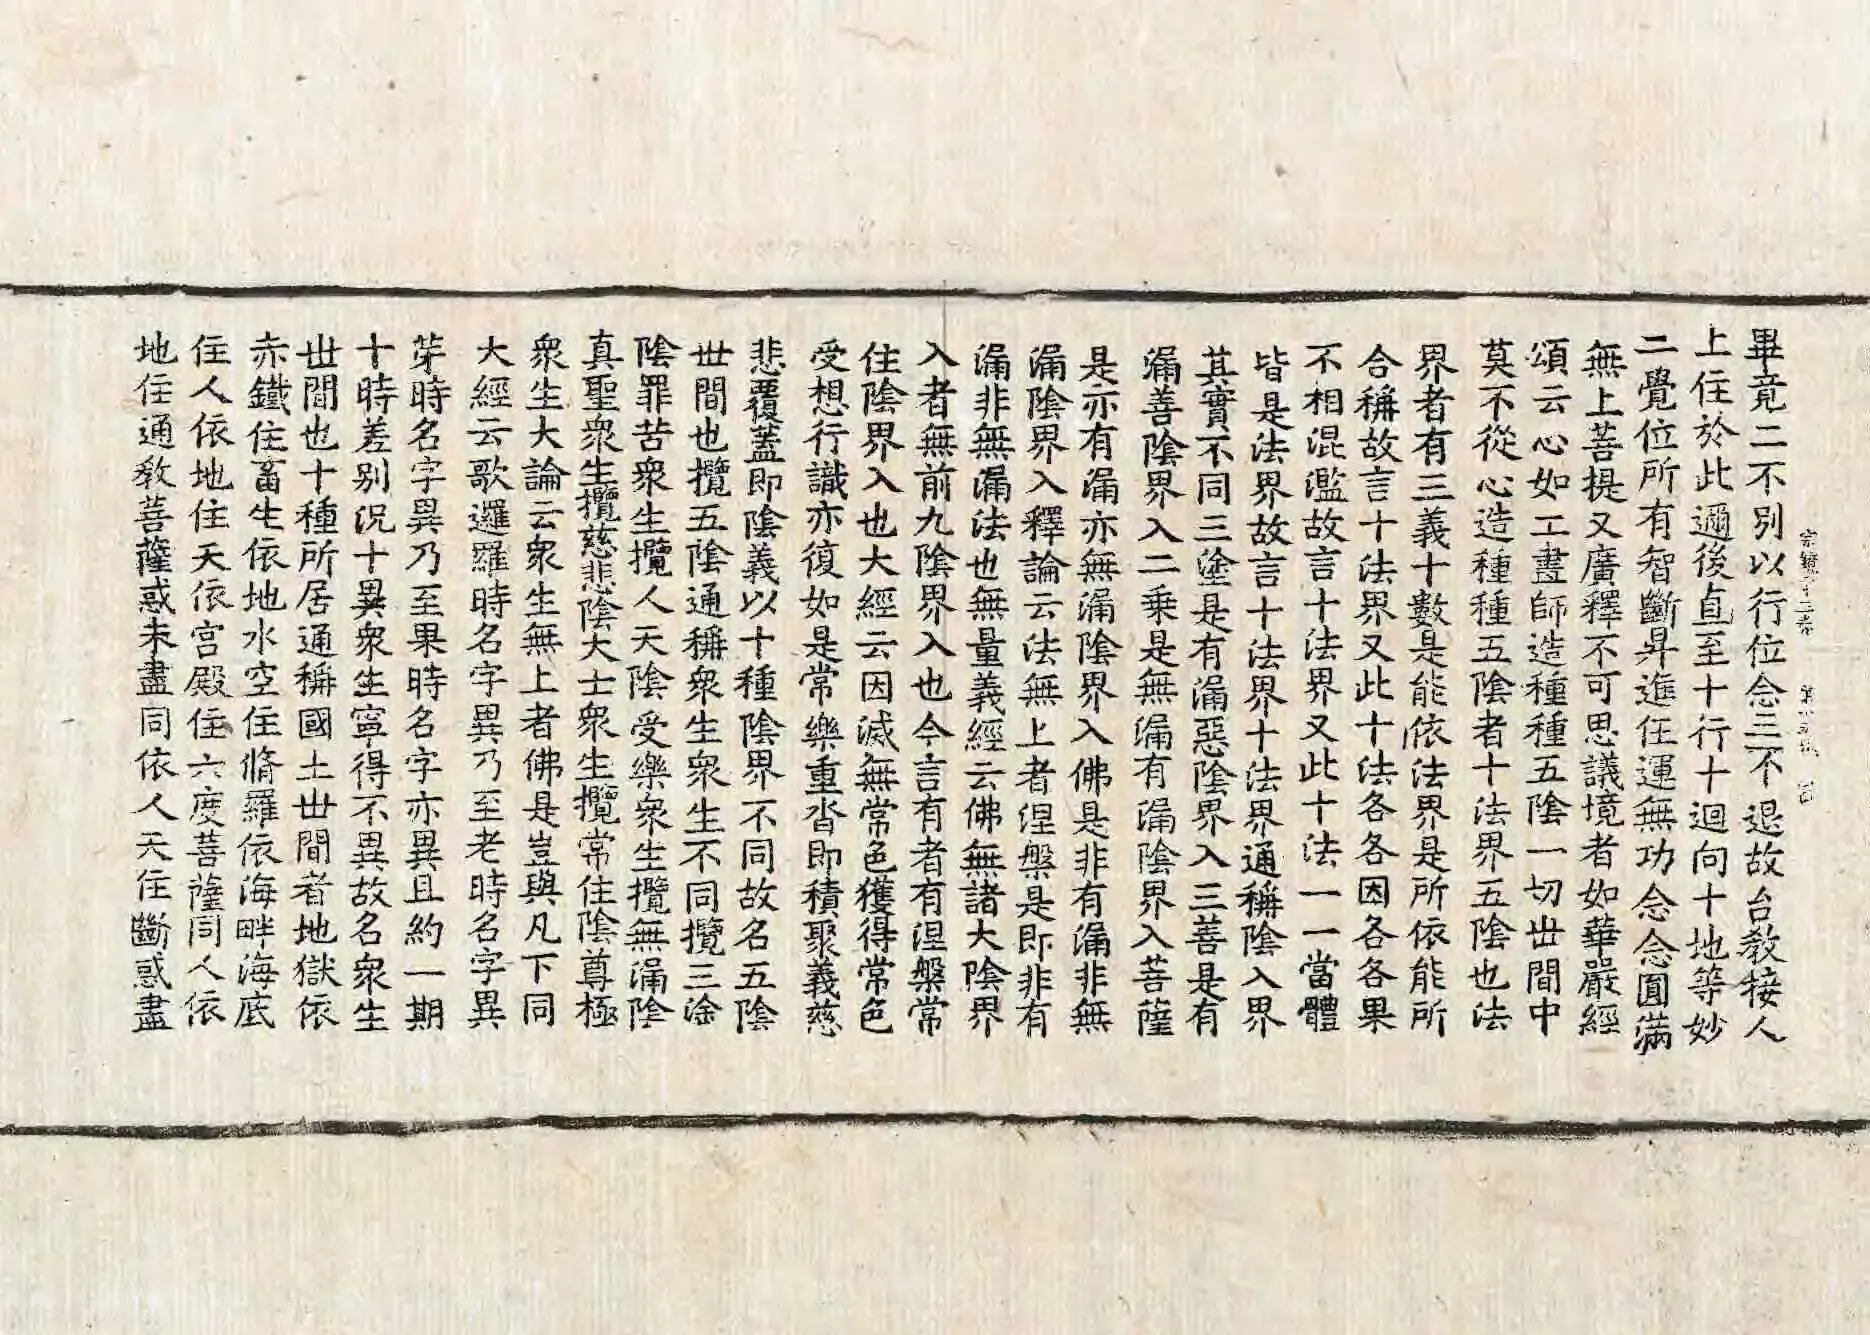 畢竟二不別以行位念三不退故台教接人
上住於此邇後直至十行十迴向十地等妙
二覺位所有智斷昇進任運無功念念圓滿
無上菩提又廣釋不可思議境者如華嚴經
頌云心如工畫師造種種五陰一切世間中
莫不從心造種種五陰者十法界五陰也法
界者有三義十數是能依法界是所依能所
合稱故言十法界又此十法各各因各各果
不相混濫故言十法界又此十法一一當體
皆是法界故言十法界十法界通稱陰入界
其實不同三塗是有漏惡陰界入三善是有
漏善陰界入二乘是無漏有漏陰界入菩薩
是亦有漏亦無漏陰界入佛是非有漏非無
漏陰界入釋論云法無上者涅槃是即非有
漏非無漏法也無量義經云佛無諸大陰界
入者無前九陰界入也今言有者有涅槃常
住陰界入也大經云因滅無常色獲得常色
受想行識亦復如是常樂重沓即積聚義慈
悲覆蓋即陰義以十種陰界不同故名五陰
世間也攬五陰通稱衆生衆生不同攬三塗
陰罪苦衆生攬人天陰受樂衆生攬無漏陰
真聖衆生攬慈悲陰大士衆生攬常住陰尊極
衆生大論云衆生無上者佛是豈與凡下同
大經云歌邏羅時名字異乃至老時名字異
芽時名字異乃至果時名字亦異且約一期
十時差別況十異衆生寧得不異故名衆生
世間也十種所居通稱國土世間者地獄依
赤鐵住畜生依地水空住脩羅依海畔海底
住人依地住天依宮殿住六度菩薩同人依
地住通教菩薩惑未盡同依人天住斷惑盡